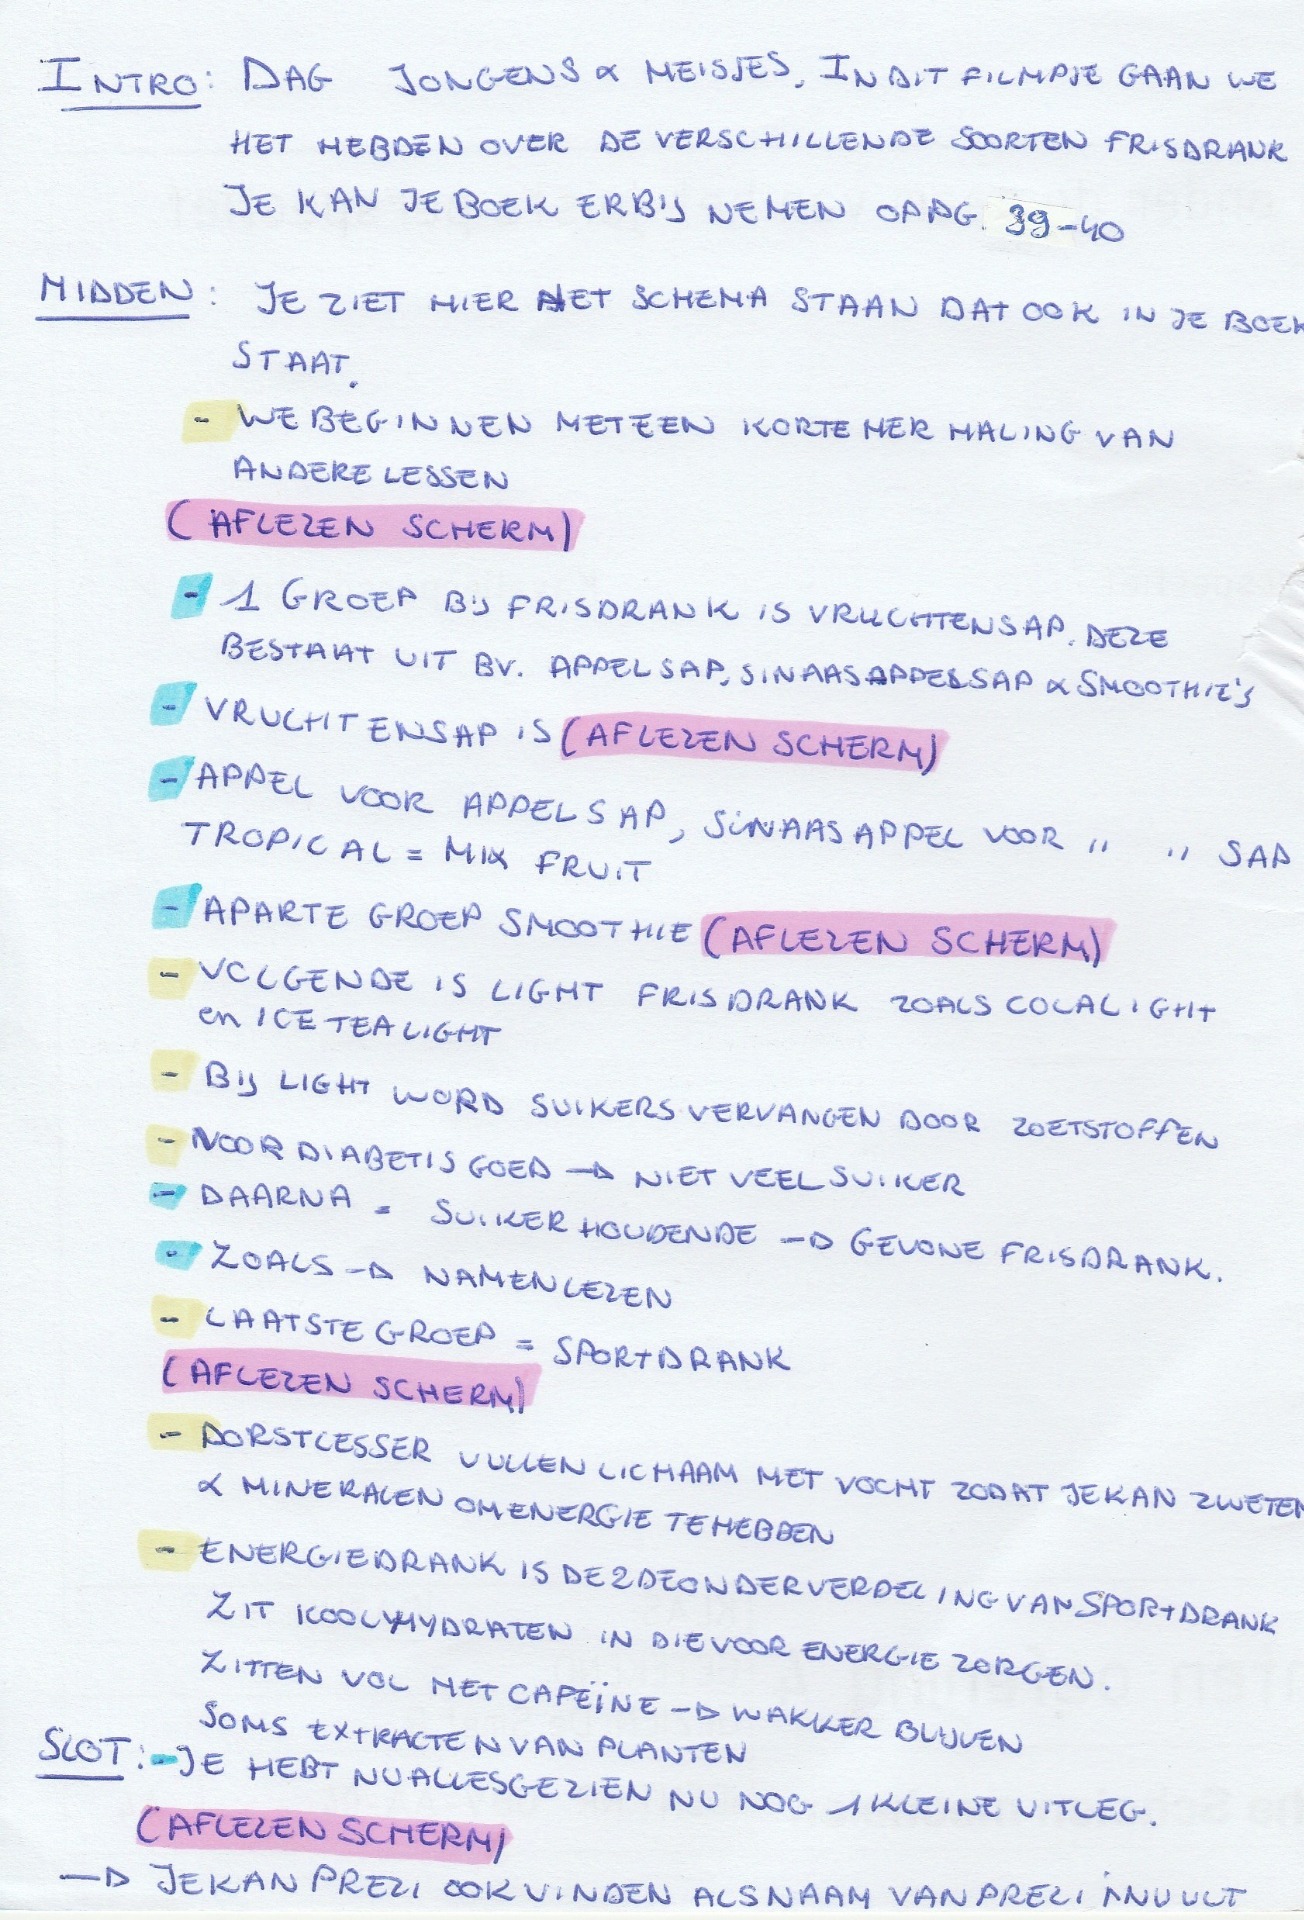 INTRO: DAG JONGENS & MEISJES, IN DIT FILMPJE GAAN WE
HET HEBDEN OVER DE VERSCHILLENDE SOORTEN FRISDRANK
JE KAN JE BOEK ERBIJ NEMEN OP PG. 39-40
MIDDEN: JE ZIET HIER HET SCHEMA STAAN DAT OOK IN JE BOEK
STAAT.
- WE BEGINNEN MET EEN KORTE HERHALING VAN
ANDERE LESSEN
(AFLEZEN SCHERM)
- 1 GROEP BIJ FRISDRANK IS VRUCHTENSAP. DEZE
BESTAAT UIT BV. APPELSAP, SINAASAPPELSAP & SMOOTHIE'S
- VRUCHTENSAP IS (AFLEZEN SCHERM)
- APPEL VOOR APPELSAP, SINAASAPPEL VOOR " " SAP
TROPICAL = MIX FRUIT
- APARTE GROEP SMOOTHIE (AFLEZEN SCHERM)
- VOLGENDE IS LIGHT FRISDRANK ZOALS COLA LIGHT
en ICE TEA LIGHT
- BIJ LIGHT WORD SUIKERS VERVANGEN DOOR ZOETSTOFFEN
- VOOR DIABETIS GOED → NIET VEEL SUIKER
- DAARNA = SUIKERHOUDENDE → GEWONE FRISDRANK.
- ZOALS → NAMEN LEZEN
- LAATSTE GROEP = SPORTDRANK
(AFLEZEN SCHERM)
- DORSTLESSER VULLEN LICHAAM MET VOCHT ZODAT JE KAN ZWETEN
& MINERALEN OM ENERGIE TE HEBBEN
- ENERGIEDRANK IS DE 2DE ONDERVERDELING VAN SPORTDRANK
ZIT KOOLHYDRATEN IN DIE VOOR ENERGIE ZORGEN.
ZITTEN VOL MET CAFEÏNE → WAKKER BLIJVEN
SOMS EXTRACTEN VAN PLANTEN
SLOT: - JE HEBT NU ALLES GEZIEN NU NOG 1 KLEINE UITLEG.
(AFLEZEN SCHERM)
→ JE KAN PREZI OOK VINDEN ALS NAAM VAN PREZI INVULT